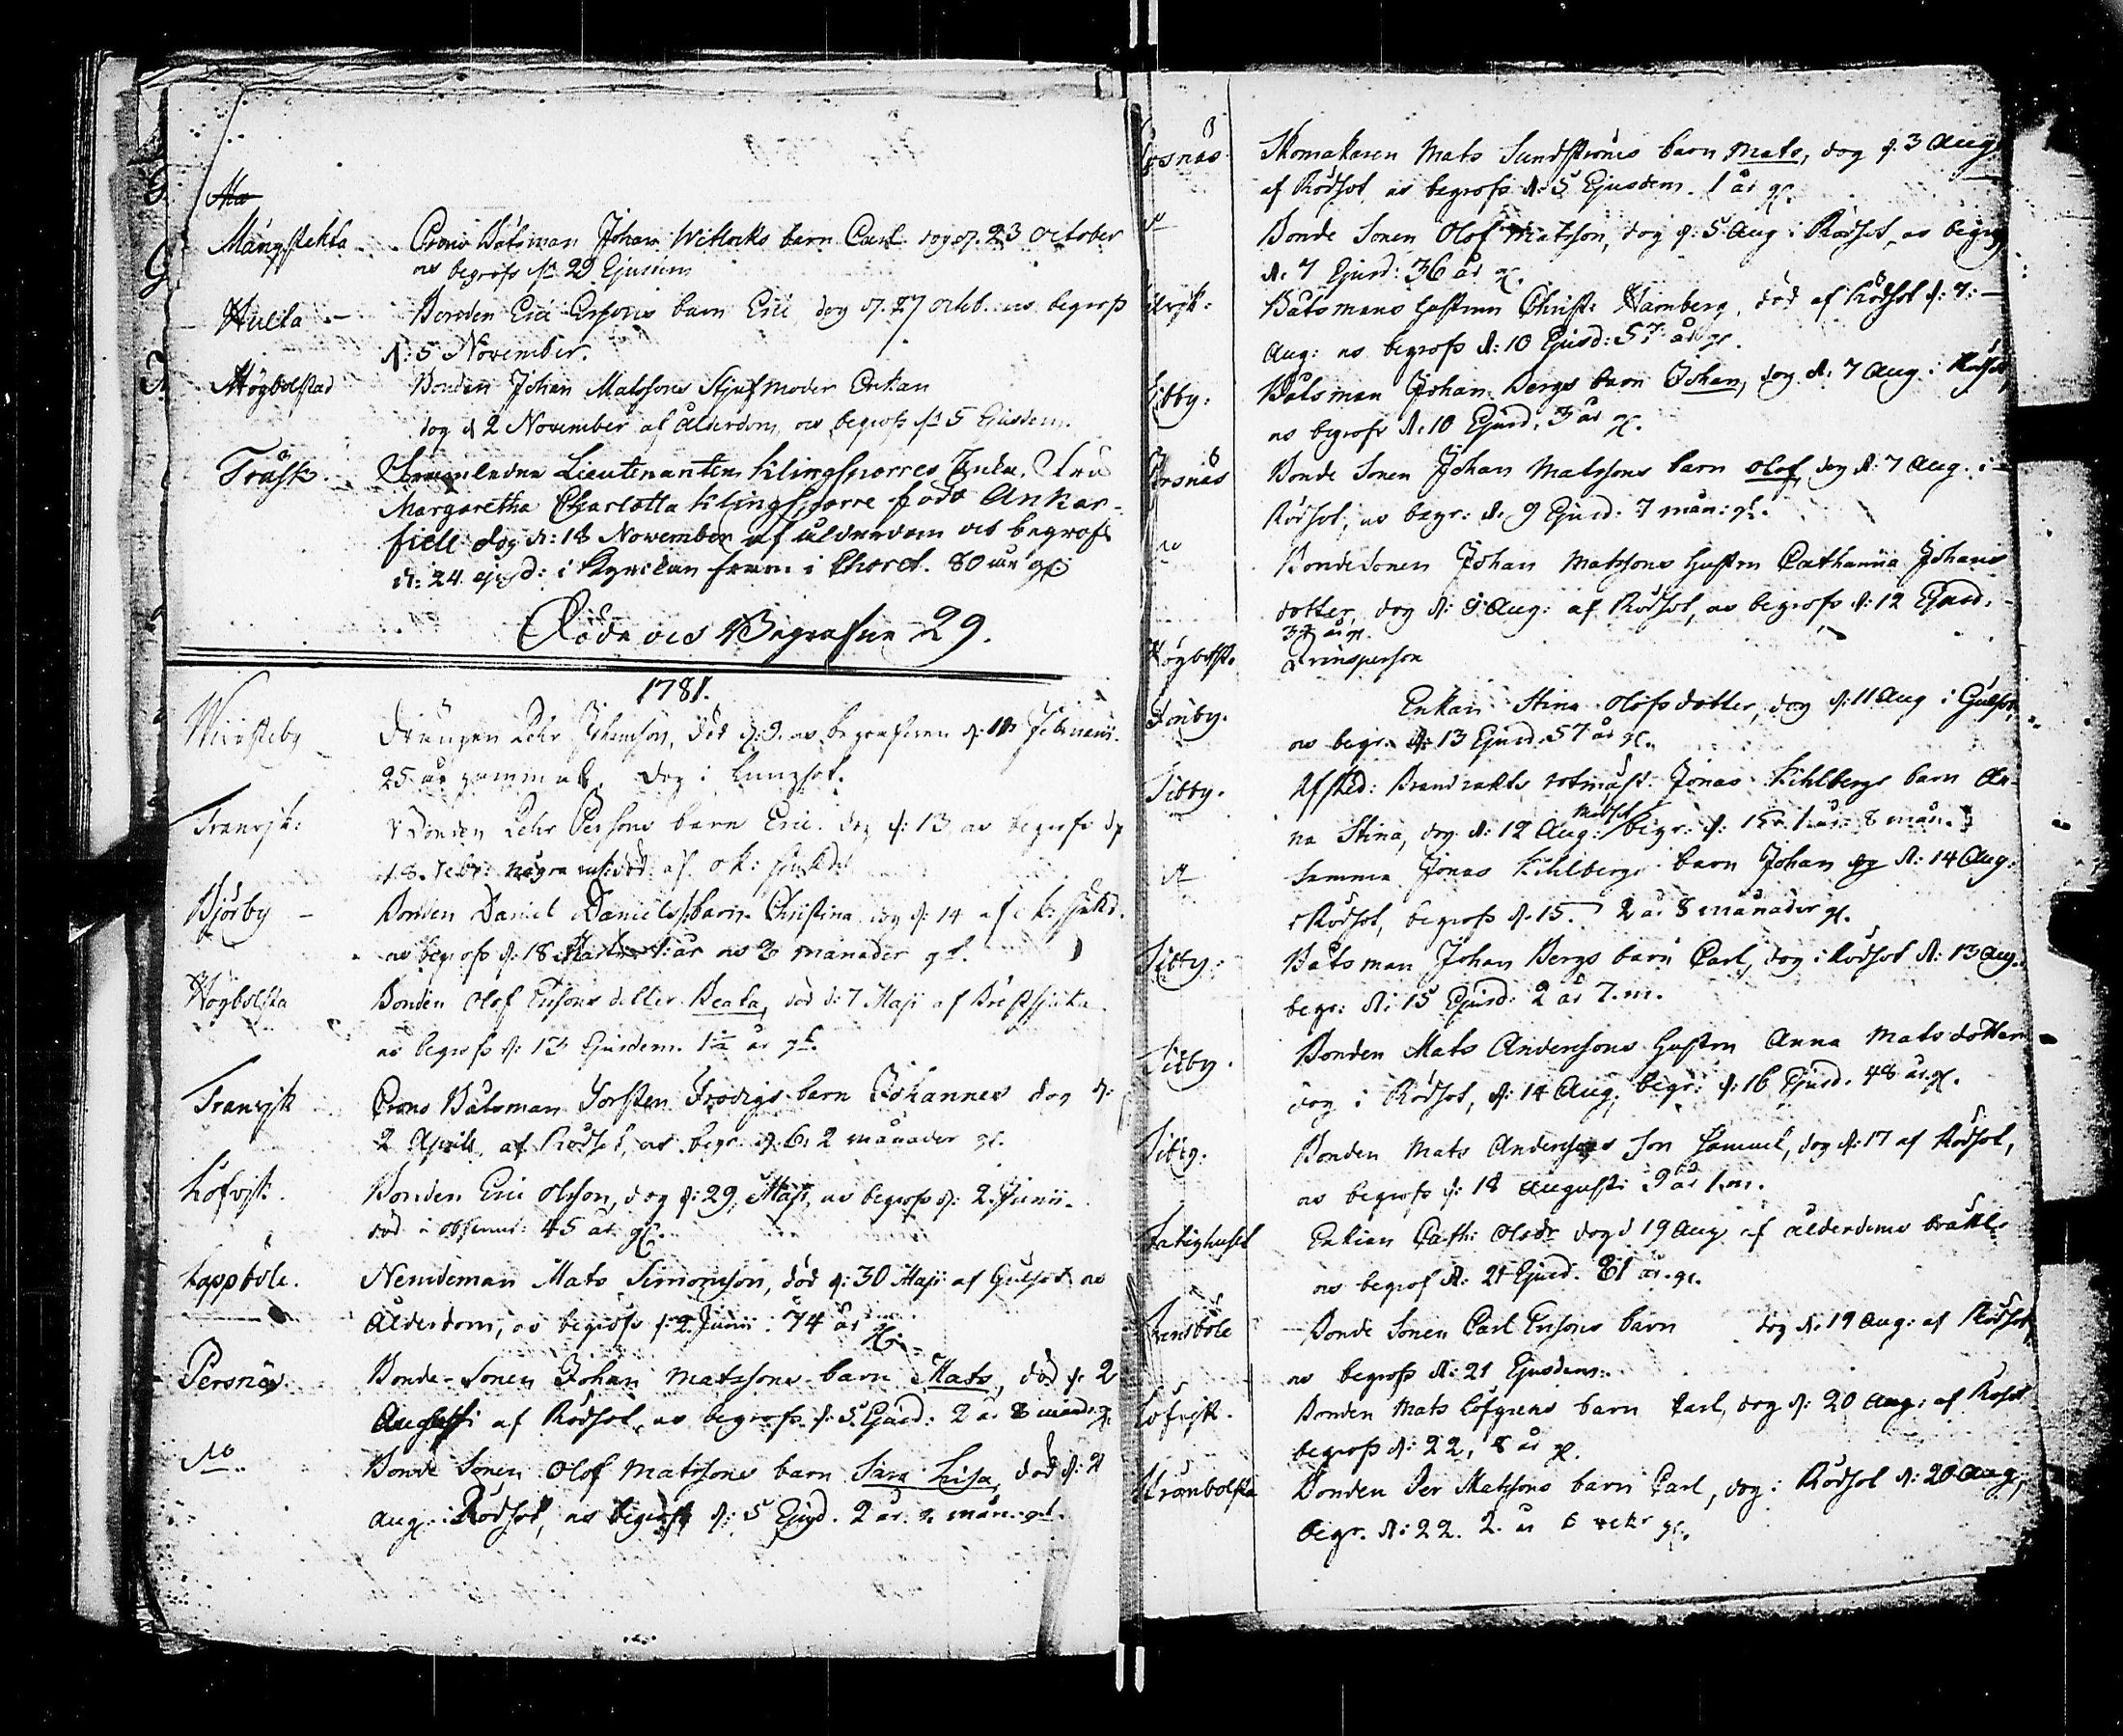 Mångstekta Crono Båtsman Johan Witlocks barn Carl dog d. 23 October
och begrofs d: 29 Ejusdem
Hulta Bonden Eric Ersons barn Eric dog d. 27 octob. och begrofs
d: 5 November.
Högbolstad Bonden Johan Matssons Stjufmoder Enkan
dog d 2 November af Ålderdom, och begrofs d: 5 Ejusdem.
Träsk. Lieutenanten Klingsporres Enka, Fru
Margaretha Charlotta Klingsporre född Ankar-
fiell dog d: 18 November af ålderdom och begrofs
d: 24 ejusd: i Kyrckan fram i Choret. 80 år gl:
Döde och Begrafne 29.
1781.
Drängen Pehr Johanson, död d: 9. och begrafven d: 18 Februarii.
25 år gammal, dog i lungsot.
Franvik: Bonden Pehr Persons barn Eric. dog d: 13 och begrofs d:
18. Febr: några af ok: siukd:
Björby Bonden Daniel Daniels: barn Christina dog d: 14 af ok: siukd.
och begrofs d: 18 1 år och 6 månader gl.
Högbolsta Bonden Olof Ersons dotter Beata, död d: 7 Maji af Bröstsjuka
och begrofs d: 13 Ejusdem. 1½ år gl.
Franvik Crono Båtsman Torsten Frodigs barn Johannes dog d:
2 Aprill af Rödsot, och begr: d: 6, 2 månader gl.
Löfvik: Bonden Eric Olsson, dog d: 29 Maji, och begrofs d: 2 Junii.
död i 45 år gl.
Lappböle. Nemdeman Mats Simonsson, död d: 30 Maji af Gulsot och
Ålderdom, och begrofs d: 2 Junii. 74 år gl.
Persnäs. Bonde-Sonen Johan Matssons barn Mats, död d: 2
Augusti af Rödsot, och begrofs d: 5 Ejusd: 2 år 8 månad. gl.
do Bonde Sonen Olof Matssons barn Sara Lisa, död d: 2
aug: i Rödsot, och begrofs d: 5 Ejusd. 2 år. 2 mån. gl.
Persnäs Skomakaren Mats Sundströms barn Mats, dog d. 3 Aug:
af Rödsot, och begrofs d: 5 Ejusdem. 1 år gl.
do Bonde Sonen Olof Matsson, dog d: 5 Aug i Rödsot, och begrof
d: 7 Ejusd: 36 år gl.
Båtsmans hustrun Christ: Hamberg, död af Rödsot d: 7:
Aug: och begrofs d: 10 Ejusd: 57 år gl.
Tibby. Båtsman Johan Bergs barn Johan, dog d: 7 Aug. i Rödsot,
och begrofs d: 10 Ejusd. 3 år gl.
Persnäs Bonde Sonen Johan Matssons barn Olof dog d: 7 Aug. i
Rödsot, och begr: d: 9 Ejusd: 7 mån: gl.
do Bonde Sonen Johan Matssons hustru Catharina Johans
dotter, dog d: 9 Aug: af Rödsot, och begrofs d: 12 Ejusd.
37 år gl.
Högbolst.
Finby. Enkan Stina Olofsdotter, dog d: 11 Aug i Gulsot,
och begr. d: 13 Ejusd. 57 år gl.
Tibby. Afsked: Jonas Kihlbergs barn An-
na Stina, dog d: 12 Aug: begr: d: 15. 1 år 8 mån.
do Samma Jonas Kihlbergs barn Johan dog d: 14 Aug:
i Rödsot, begrofs d. 15. 2 år 8 månader gl.
Tibby: Båtsman Johan Bergs barn Carl, dog i Rödsot d: 13 Aug.
begr: d: 15 Ejusd: 2 år 7. m.
Tibby. Bonden Mats Andersons hustru Anna Matsdotter
dog i Rödsot, d: 14 Aug. begr: d: 16 Ejusd. 48 år gl.
Tibby. Bonden Mats Andersons son Samuel, dog d: 17 af Rödsot,
och begrofs d: 18 Augusti 9 år 1. m.
Fatighuset Enkian Cath: Olsdr dog d 19 Aug af ålderdoms bräckl.
och begrof d: 21 Ejusd. 81 år. gl.
Bonde Sonen Carl Ersons barn dog d: 19 Aug: af Rödsot
och begrofs d: 21 Ejusdem.
Löfvik. Bonden Mats Löfgrens barn Carl, dog d: 20 Aug: af Rödsot
begrofs d: 22, 8 år gl.
Strömbolsta Bonden Per Matssons barn Carl, dog i Rödsot d: 20 Aug,
begr. d: 22. 2. år 6 gl.